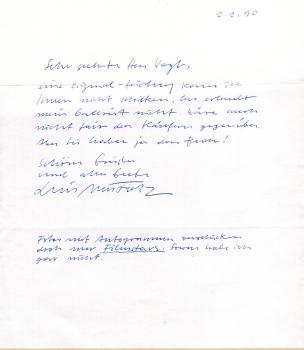 2.2.90
Sehr geehrter Herr Vogt,
eine Original-Zeichnung kann ich
Ihnen nicht schicken, das erlaubt
mein Galerist nicht, wäre auch
nicht fair den Käufern gegenüber.
Aber Sie haben ja den Brief!
Schöne Grüße
und alles Gute
Fotos mit Autogrammen verschicken
doch nur Filmstars. Sowas habe ich
gar nicht.